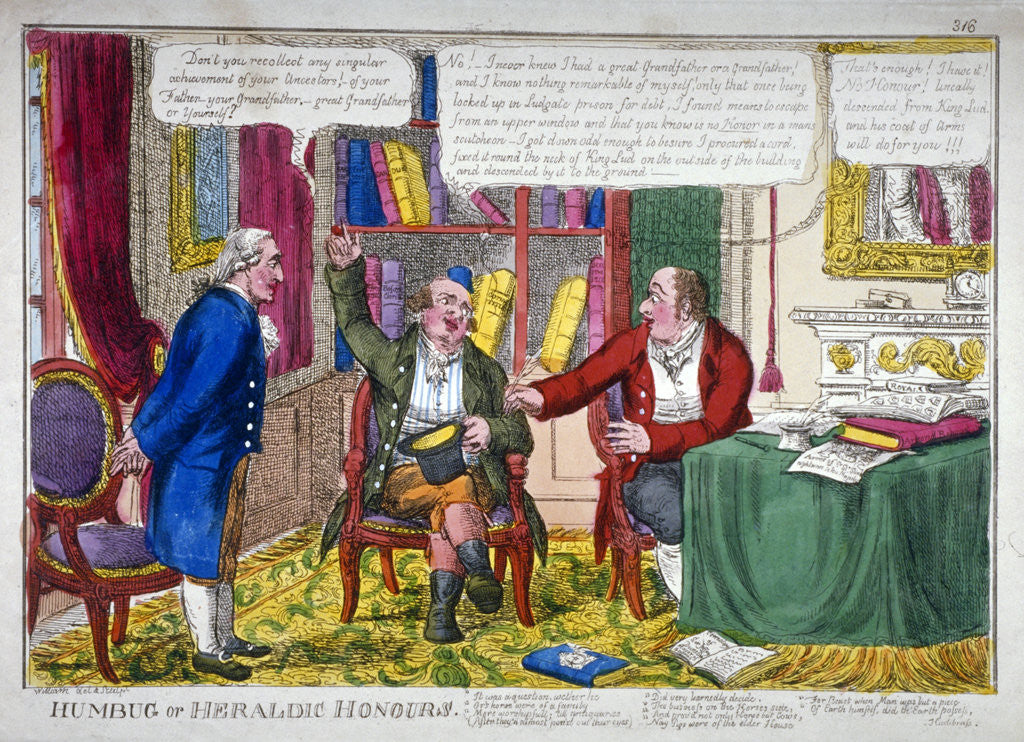 316
Don't you recollect any singular
achievement of your Ancestors! - of your
Father - your Grandfather, - great Grandfather
or Yourself?
No! - I never knew I had a great Grandfather or a Grandfather,
and I know nothing remarkable of myself, only that once being
locked up in Ludgate prison for debt, I found means to escape
from an upper window and that you know is no Honor in a mans
scutcheon - I got down odd enough to besure I procured a cord,
fixed it round the neck of King Lud on the outside of the building
and descended by it to the ground -
That's enough! I have it!
No Honour! lineally
descended from King Lud.
and his coat of Arms
will do for you!!!
ROYALE
Arms of
William Del & Sculp
HUMBUG or HERALDIC HONOURS.
"It was a question, wether he
"Or's horse were of a family
"More worshipfull; 'till antiquaries
"(After they'd almost por'd out their eyes)
"Did very learnedly decide.
"The business on the Horses side,
"And prov'd not only Horse but Cows,
"Nay Pigs were of the elder House
"For Beast when Man was but a piece
"Of Earth himself, did th' Earth possess,
Hudibras.